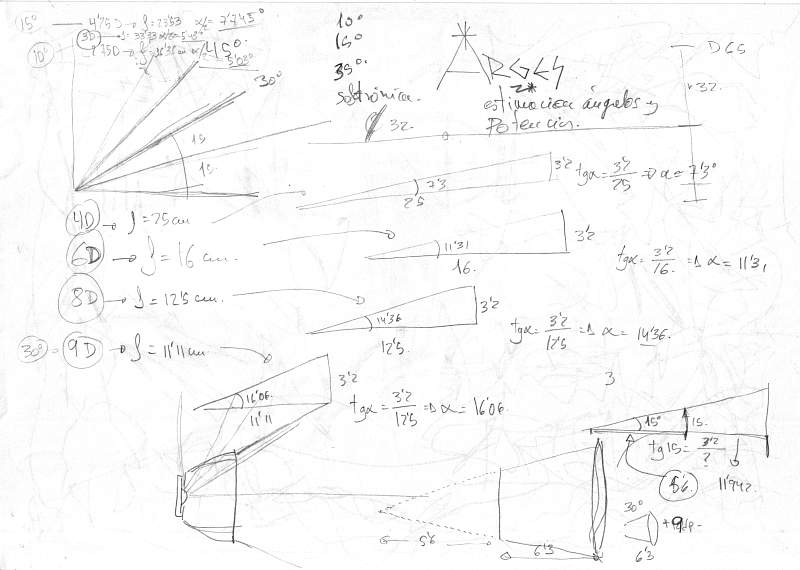 15° — 4'75D → f = 23'53 α/2 = 7'745°
3D → f = 33'33 α/2 = 5'48°
10°
45°
5'02°
30°
15
15
10°
15°
35°
ARGES
estimacion ángulos y
Potencias.
D65
r 32.
32.
7'3
25
3'2
tgα = 3'2/25 ⇒ α = 7'3°
4D → f = 25 cm
6D → f = 16 cm.
11'31
16.
3'2
tgα = 3'2/16. ⇒ α = 11'31
8D → f = 12'5 cm.
14'36
12'5.
3'2
tgα = 3'2/12'5 ⇒ α = 14'36.
30° = 9D → f = 11'11 cm
16'06.
11'11
3'2
tgα = 3'2/12'5 ⇒ α = 16'06.
3
15°
15.
tg 15 = 3'2/?
5'6.
11'942.
5'6
6'3
30°
+9
6'3